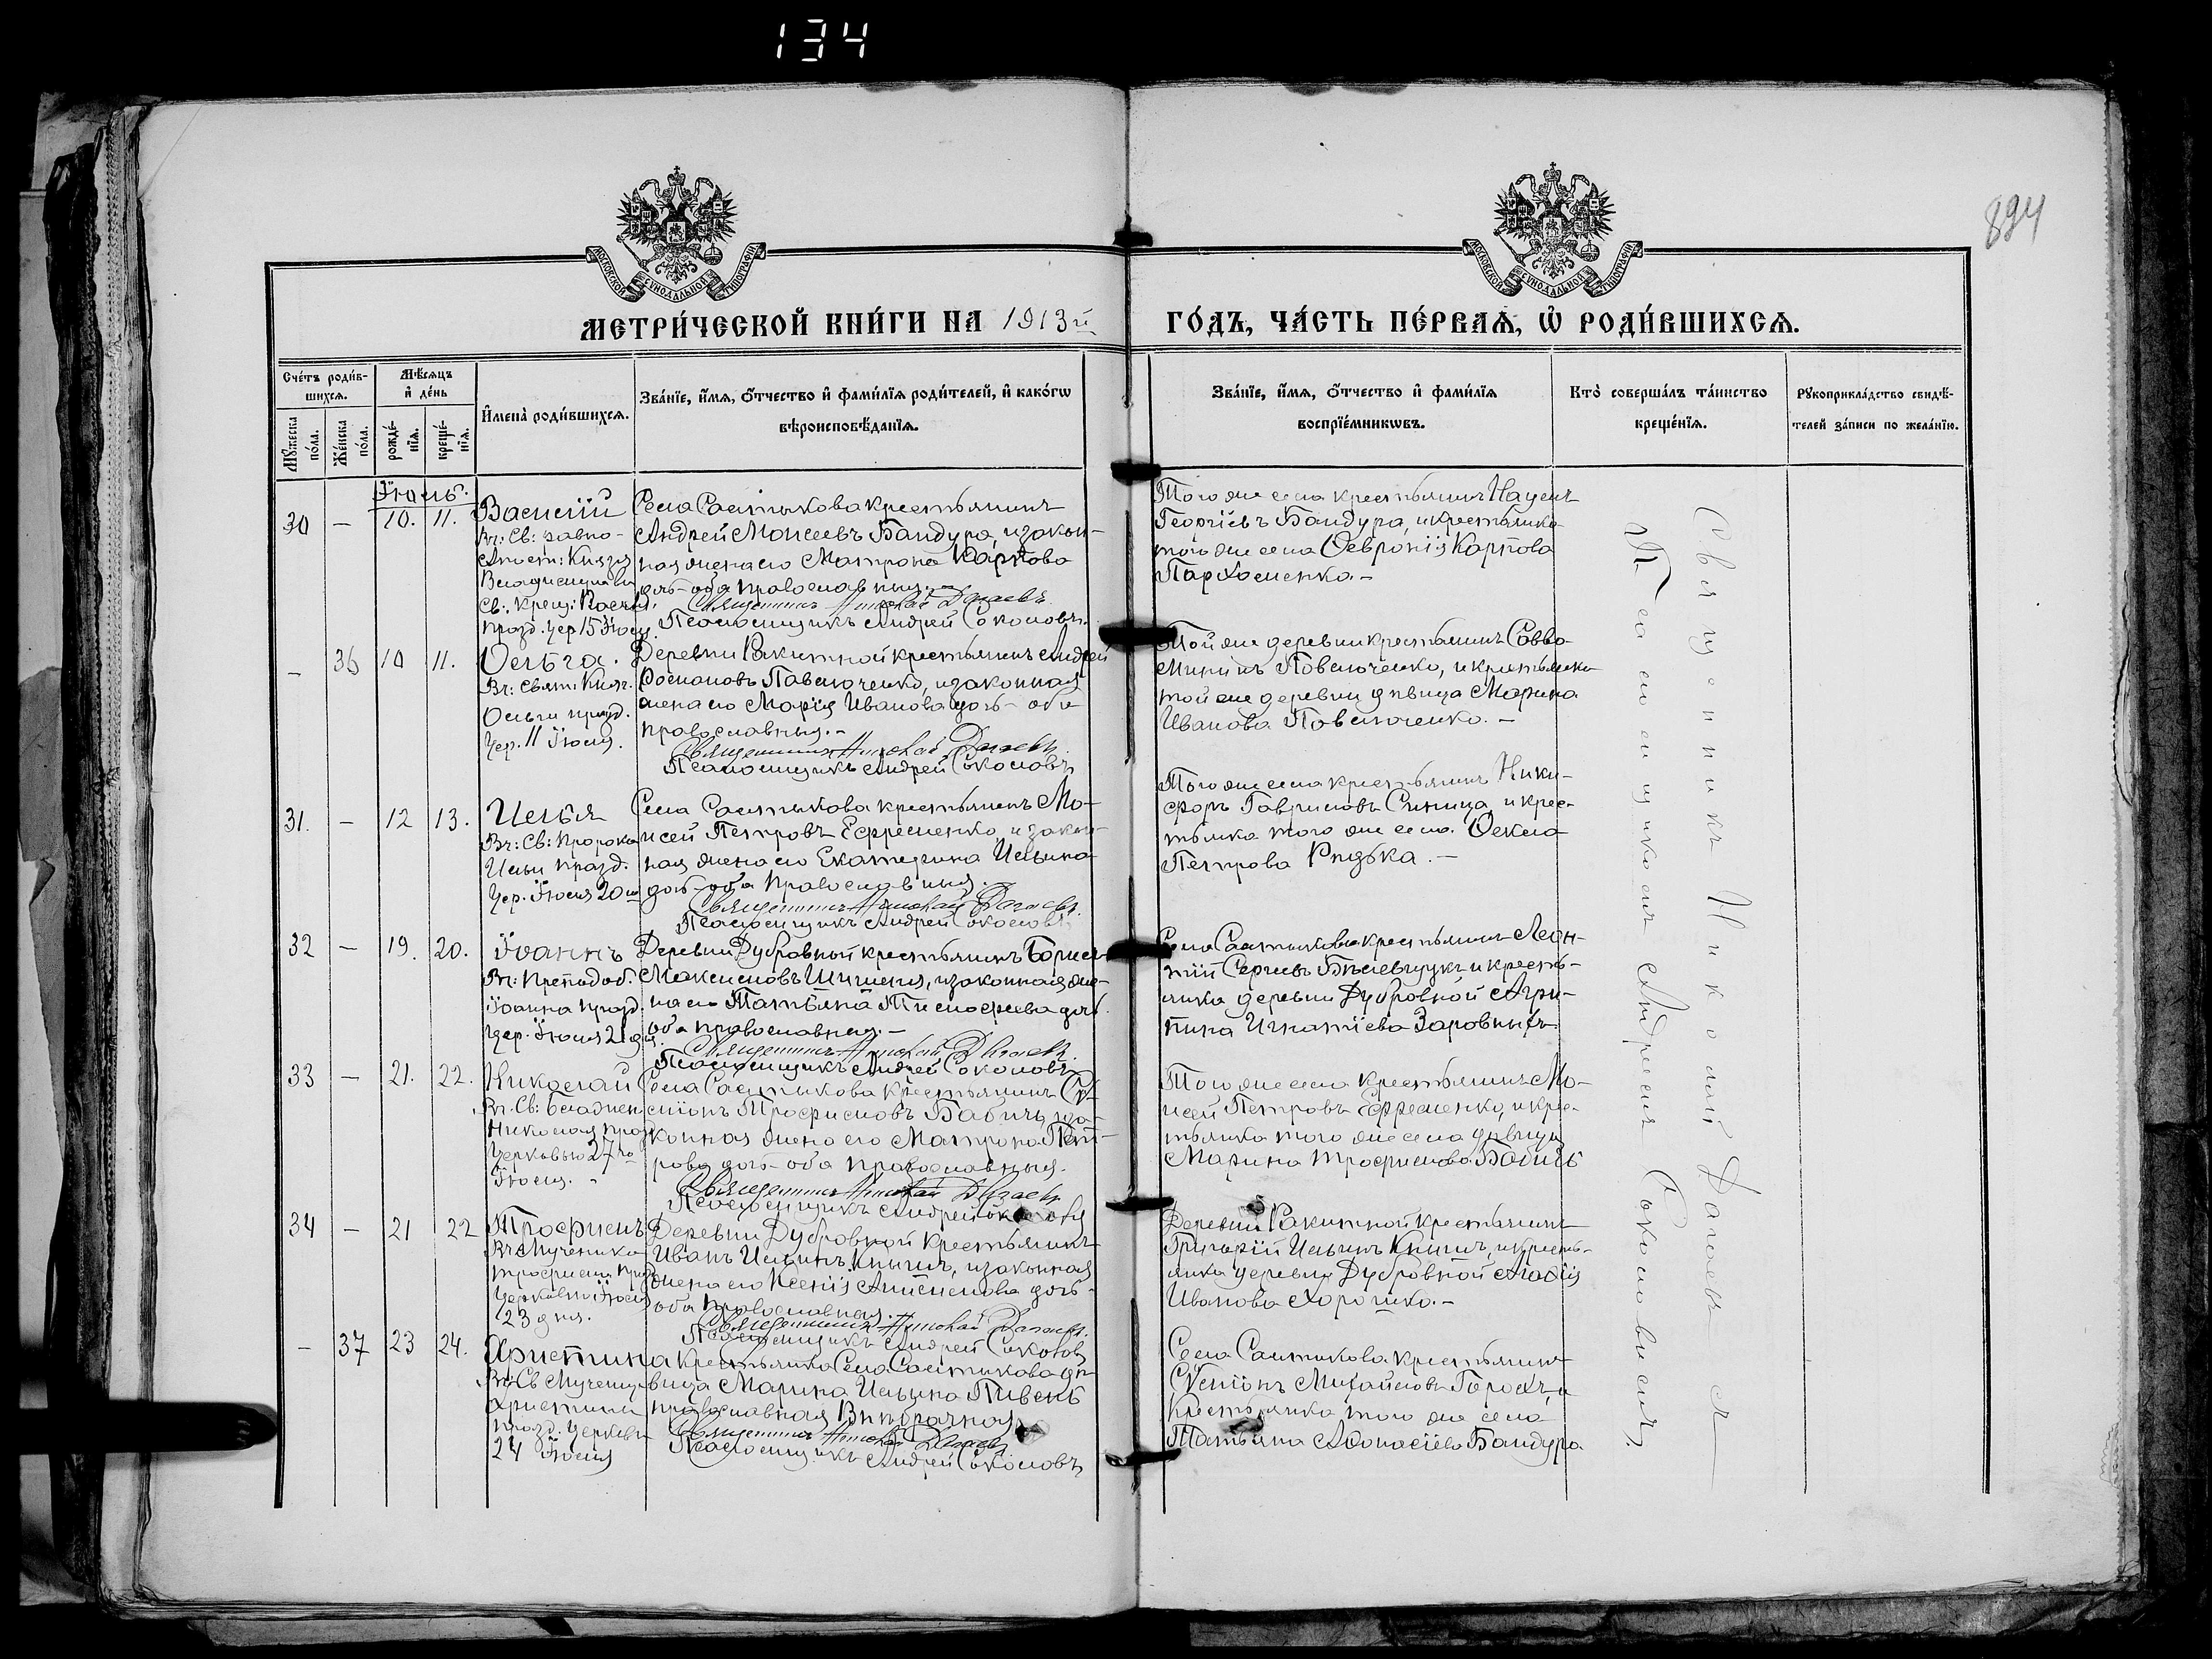 134
894
МОСКОВСКОЙ СѴНОДАЛЬНОЙ ТИПОГРАФІИ
МОСКОВСКОЙ СѴНОДАЛЬНОЙ ТИПОГРАФІИ
МЕТРИ́ЧЕСКОЙ КНИ́ГИ НА 1913й
ГО́ДЪ, ЧА́СТЬ ПЕ́РВАѦ, Ѡ҆ РОДИ́ВШИХСѦ.
Сче́тъ роди́в-
шихсѧ.
Мꙋ́жеска по́ла.
Же́нска по́ла.
Мѣ́сѧцъ
и҆ де́нь
рожде́-
нїѧ.
креще́-
нїѧ.
И҆мена̀ роди́вшихсѧ.
Зва́нїе, и҆́мѧ, ѻ҆́тчество и҆ фами́лїѧ роди́телей, и҆ како́гѡ
вѣроисповѣ́данїѧ.
Зва́нїе, и҆́мѧ, ѻ҆́тчество и҆ фами́лїѧ
воспрїе́мникѡвъ.
Кто̀ соверша́лъ та́инство
креще́нїѧ.
Рꙋкоприкла́дство свидѣ́-
телей за́писи по жела́нїю.
Іюль.
30 — 10. 11.
Василій
Вч: Св: равно-
Апост: Князя
Владиміра во
Св: Крещ: Васил.
празд. цер 15 Іюля.
Села Салтыкова крестьянинъ
Андрей Моисеевъ Бандура, и закон-
ная жена его Матрона Карпова
дочь - оба православныя. —
Священникъ Николай Дагаевъ.
Псаломщикъ Андрей Соколовъ.
Того же села крестьянинъ Наумъ
Георгіевъ Бандура, и крестьянка
того же села Ѳевронія Карпова
Пархоменко. —
— 36 10 11.
Ольга.
Вч: Свят: Княг.
Ольги празд.
Цер. 11 Іюля.
Деревни Ракитной крестьянинъ Андрей
Романовъ Павлюченко, и законная
жена его Марія Иванова дочь - оба
православныя. —
Священникъ Николай Дагаевъ.
Псаломщикъ Андрей Соколовъ
Той же деревни крестьянинъ Савва
Мининъ Павлюченко, и крестьянка
той же деревни дѣвица Марина
Иванова Павлюченко. —
31. — 12 13.
Илья
Вч: Св: Пророка
Ильи празд.
Цер. Іюля 20го
Села Салтыкова крестьянинъ Мо-
исей Петровъ Ефременко, и закон-
ная жена его Екатерина Ильина
дочь - оба православныя. —
Священникъ Николай Дагаевъ.
Псаломщикъ Андрей Соколовъ
Того же села крестьянинъ Ники-
форъ Гавриловъ Синица, и крес-
тьянка того же села Ѳекла
Петрова Рѣдька. —
32 — 19. 20.
Іоаннъ
Вч: Преподоб.
Іоанна празд.
Цер. Іюля 21 дня.
Деревни Дубровной крестьянинъ Борисъ
Максимовъ Шишеня, и законная же-
на его Татьяна Тимофеева дочь
оба православныя. —
Священникъ Николай Дагаевъ.
Псаломщикъ Андрей Соколовъ
Села Салтыкова крестьянинъ Леон-
тій Сергіевъ Бѣлевцукъ и кресть-
янка деревни Дубровной Агри-
пина Игнатіева Заровныхъ.
33 — 21. 22.
Николай
Вч. Св: Блажен
Николая праз.
Церковью 27го
Іюля.
Села Салтыкова крестьянинъ Сѵ-
меонъ Трофимовъ Бабичъ, и за-
конная жена его Матрона Пет-
рова дочь - оба православныя.
Священникъ Николай Дагаевъ.
Псаломщикъ Андрей Соколовъ
Того же села крестьянинъ Мо-
исей Петровъ Ефременко, и крес-
тьянка того же села дѣвица
Марина Трофимова Бабичъ
34 — 21 22
Трофимъ
Вч Мученика
Трофима праз.
Церковью Іюля
23 дня.
Деревни Дубровной крестьянинъ
Иванъ Ильинъ Книшъ, и законная
жена его Ксенія Анѳимова дочь -
оба православныя.
Священникъ Николай Дагаевъ.
Псаломщикъ Андрей Соколовъ
Деревни Ракитной крестьянинъ
Григорій Ильинъ Книшъ, и кресть-
янка деревни Дубровной Агаѳія
Иванова Хорошко. —
— 37 23 24.
Христина
Вч: Св Мучениц
Христины
празд. Церковью
24 Іюля
крестьянка Села Салтыкова дѣ-
вица Марина Ильина Пивень
православная Внѣбрачная
Священникъ Николай Дагаевъ.
Псаломщикъ Андрей Соколовъ
Села Салтыкова крестьянинъ
Сѵмеонъ Михайловъ Горохъ, и
крестьянка того же села
Татьяна Аѳонасіева Бандура
Священникъ Николай Дагаевъ съ
Псаломщикомъ Андреемъ Соколовымъ.